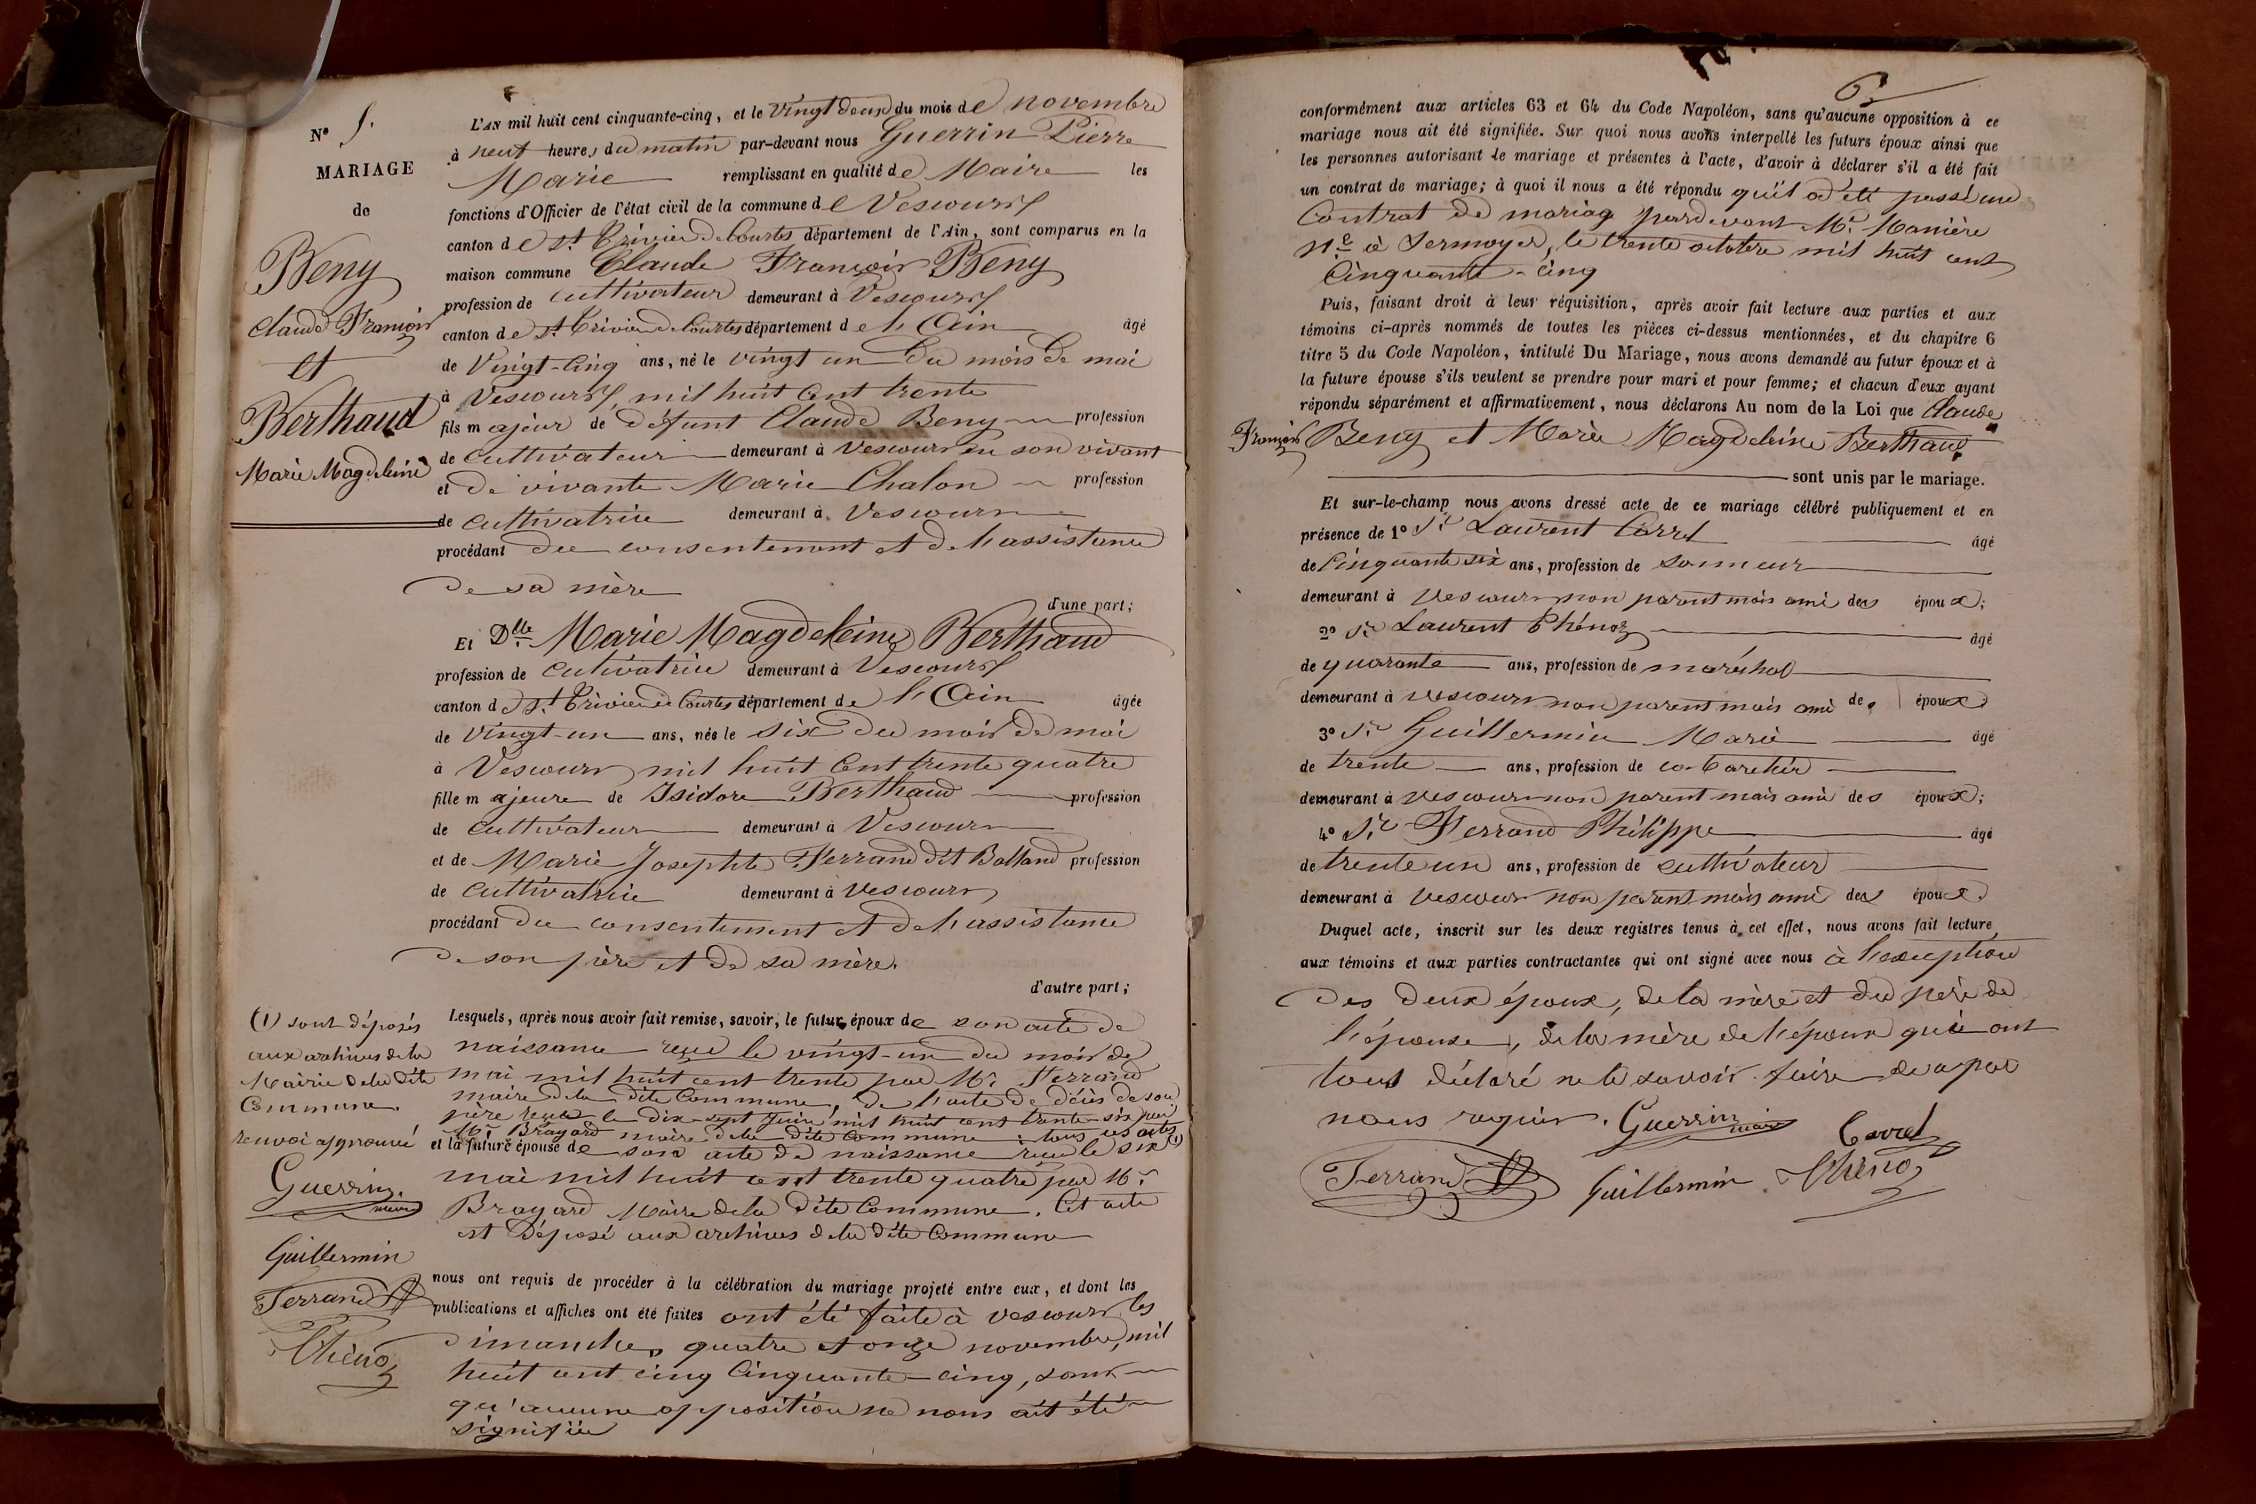 N° 5.
MARIAGE
de
Beny
Claude François
et
Berthaud
Marie Magdeleine
L'AN mil huit cent cinquante-cinq, et le vingt deux du mois de novembre
à neuf heures du matin par-devant nous Guerrin Pierre
Marie remplissant en qualité de Maire les
fonctions d'Officier de l'état civil de la commune de Vescours
canton de St. Trivier de Courtes département de l'Ain, sont comparus en la
maison commune Claude François Beny
profession de cultivateur demeurant à Vescours
canton de St Trivier de Courtes département de l'Ain âgé
de Vingt-cinq ans, né le vingt un du mois de mai
à Vescours, mil huit cent trente
fils majeur de défunt Claude Beny profession
de cultivateur demeurant à Vescours en son vivant
et de vivante Marie Chalon profession
de cultivatrice demeurant à Vescours
procédant du consentement et de l'assistance
de sa mère
d'une part;
Et Dlle Marie Magdeleine Berthaud
profession de cultivatrice demeurant à Vescours
canton de St. Trivier de Courtes département de l'Ain âgée
de vingt-un ans, née le six du mois de mai
à Vescours mil huit cent trente quatre
fille majeure de Isidore Berthaud profession
de cultivateur demeurant à Vescours
et de Marie Josephte Ferrand dit Balland profession
de cultivatrice demeurant à Vescours
procédant du consentement et de l'assistance
de son père et de sa mère.
d'autre part;
Lesquels, après nous avoir fait remise, savoir, le futur époux de son acte de
naissance reçu le vingt-un du mois de
mai mil huit cent trente par Mr. Ferrand
maire de la dite Commune, de l'acte de décès de son
père reçu le dix-sept juin mil huit cent trente-six par
Mr. Brayard maire de la dite commune : tous ces actes (1)
et la future épouse de son acte de naissance reçu le six
mai mil huit cent trente quatre par Mr.
Brayard Maire de la dite Commune. Cet acte
est déposé aux archives de la dite Commune
nous ont requis de procéder à la célébration du mariage projeté entre eux, et dont les
publications et affiches ont été faites ont été faite à Vescours les
dimanches quatre et onze novembre, mil
huit cent cinq cinquante-cinq, sans
qu'aucune opposition ne nous ait été
signifiée
(1) sont déposés
aux archives de la
Mairie de la dite
Commune.
renvoi approuvé
Guerrin
maire
Guillermin
Ferrand
Phénoz
6
conformément aux articles 63 et 64 du Code Napoléon, sans qu'aucune opposition à ce
mariage nous ait été signifiée. Sur quoi nous avons interpellé les futurs époux ainsi que
les personnes autorisant le mariage et présentes à l'acte, d'avoir à déclarer s'il a été fait
un contrat de mariage; à quoi il nous a été répondu qu'il a été passé une
Contrat de mariag pardevant Mr. Manière
Nre à Sermoyer, le trente octobre mil huit cent
Cinquante-cinq
Puis, faisant droit à leur réquisition, après avoir fait lecture aux parties et aux
témoins ci-après nommés de toutes les pièces ci-dessus mentionnées, et du chapitre 6
titre 5 du Code Napoléon, intitulé Du Mariage, nous avons demandé au futur époux et à
la future épouse s'ils veulent se prendre pour mari et pour femme; et chacun d'eux ayant
répondu séparément et affirmativement, nous déclarons Au nom de la Loi que Claude
François Beny et Marie Magdeleine Berthaud
sont unis par le mariage.
Et sur-le-champ nous avons dressé acte de ce mariage célébré publiquement et en
présence de 1° Sr Laurent Carrel âgé
de cinquante six ans, profession de sonneur
demeurant à Vescours non parent mais ami des époux;
2° Sr Laurent Phénoz âgé
de quarante ans, profession de maréchal
demeurant à Vescours non parent mais ami de époux
3° Sr Guillermin Marie âgé
de trente ans, profession de cabaretier
demeurant à Vescours non parent mais ami des époux;
4° Sr Ferrand Philippe âgé
de trente un ans, profession de cultivateur
demeurant à Vescours non parent mais ami des époux
Duquel acte, inscrit sur les deux registres tenus à cet effet, nous avons fait lecture
aux témoins et aux parties contractantes qui ont signé avec nous à l'exception
des deux époux, de la mère et du père de
l'épouse, de la mère de l'époux qui ont
tous déclaré ne le savoir faire de a par
nous requis. Guerrin maire Carrel
Ferrand Guillermin Phénoz